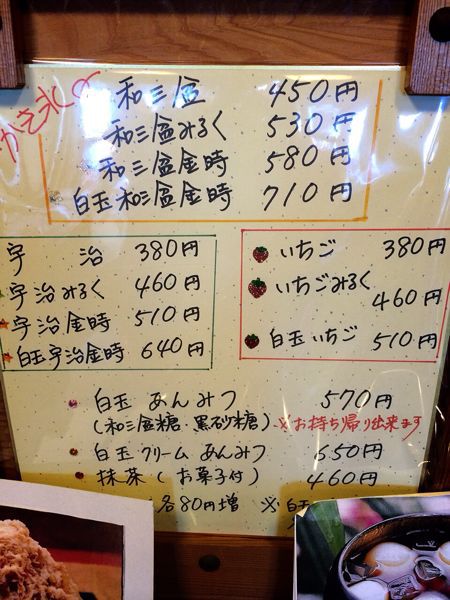 かき氷の
和三盆 450円
和三盆みるく 530円
和三盆金時 580円
白玉和三盆金時 710円
宇治 380円
宇治みるく 460円
宇治金時 510円
白玉宇治金時 640円
いちご 380円
いちごみるく
460円
白玉いちご 510円
白玉 あんみつ 570円
(和三盆糖・黒砂糖) ※お持ち帰り出来ます
白玉クリームあんみつ 650円
抹茶(お菓子付) 460円
各80円増 ※白玉